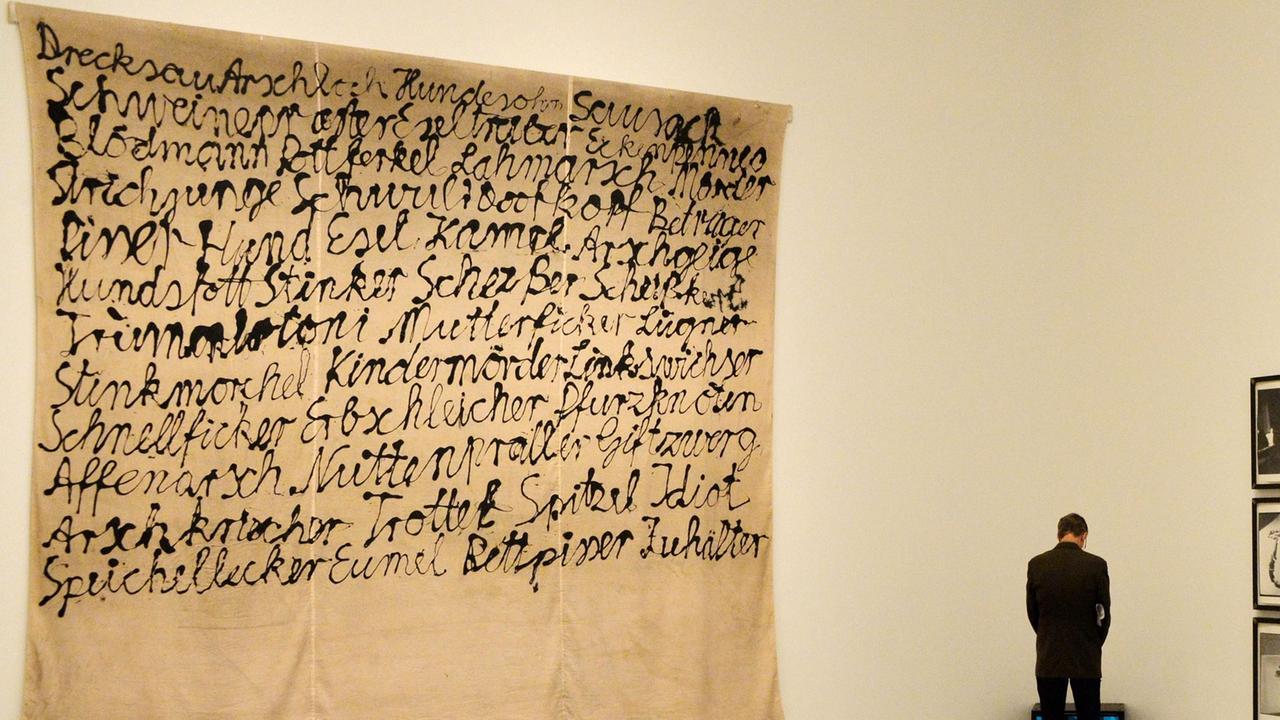 Drecksau Arschloch Hundesohn Sausack
Schweinepriester Eseltreiber
Blödmann Pottferkel Lahmarsch Mörder
Strichjunge Schwuli Doofkopf Betrüger
Hund Esel Kamel Arschgeige
Hundsfott Stinker Scheißkerl
Mutterficker Lügner
Stinkmorchel Kindermörder Linkswichser
Schnellficker Erbschleicher Pfurzknoten
Affenarsch Nuttenpreller Giftzwerg
Arschkriecher Trottel Spitzel Idiot
Speichellecker Eumel Bettpisser Zuhälter